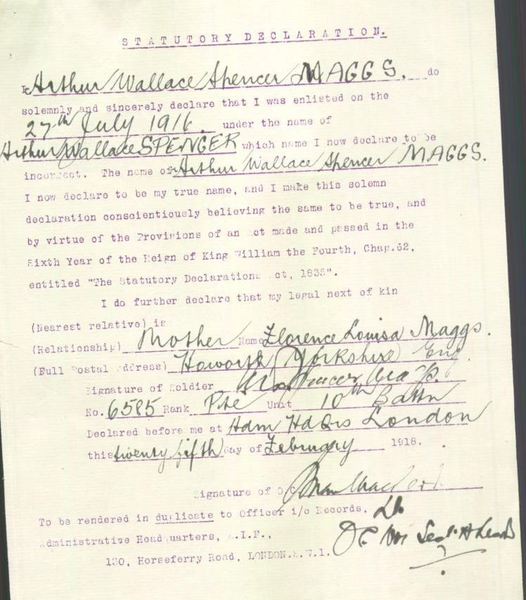 STATUTORY DECLARATION.
I, Arthur Wallace Spencer MAGGS. do
solemnly and sincerely declare that I was enlisted on the
27th July 1916. under the name of
Arthur Wallace SPENCER which name I now declare to be
incorrect. The name of Arthur Wallace Spencer MAGGS.
I now declare to be my true name, and I make this solemn
declaration conscientiously believing the same to be true, and
by virtue of the Provisions of an Act made and passed in the
Sixth Year of the Reign of King William the Fourth, Chap.62,
entitled "The Statutory Declarations Act, 1835".
I do further declare that my legal next of kin
(Nearest relative) is
(Relationship) Mother Name Florence Louisa Maggs.
(Full Postal Address) Haworth (Yorkshire) Eng.
Signature of Soldier Spencer Maggs.
No. 6585 Rank Pte Unit 10th Battn
Declared before me at Adm Hd Qrs London
this twenty fifth day of February 1918.
Signature of O/C
To be rendered in duplicate to Officer i/c Records, Lt
Administrative Headquarters, A.I.F.,
130, Horseferry Road, LONDON.S.W.1.